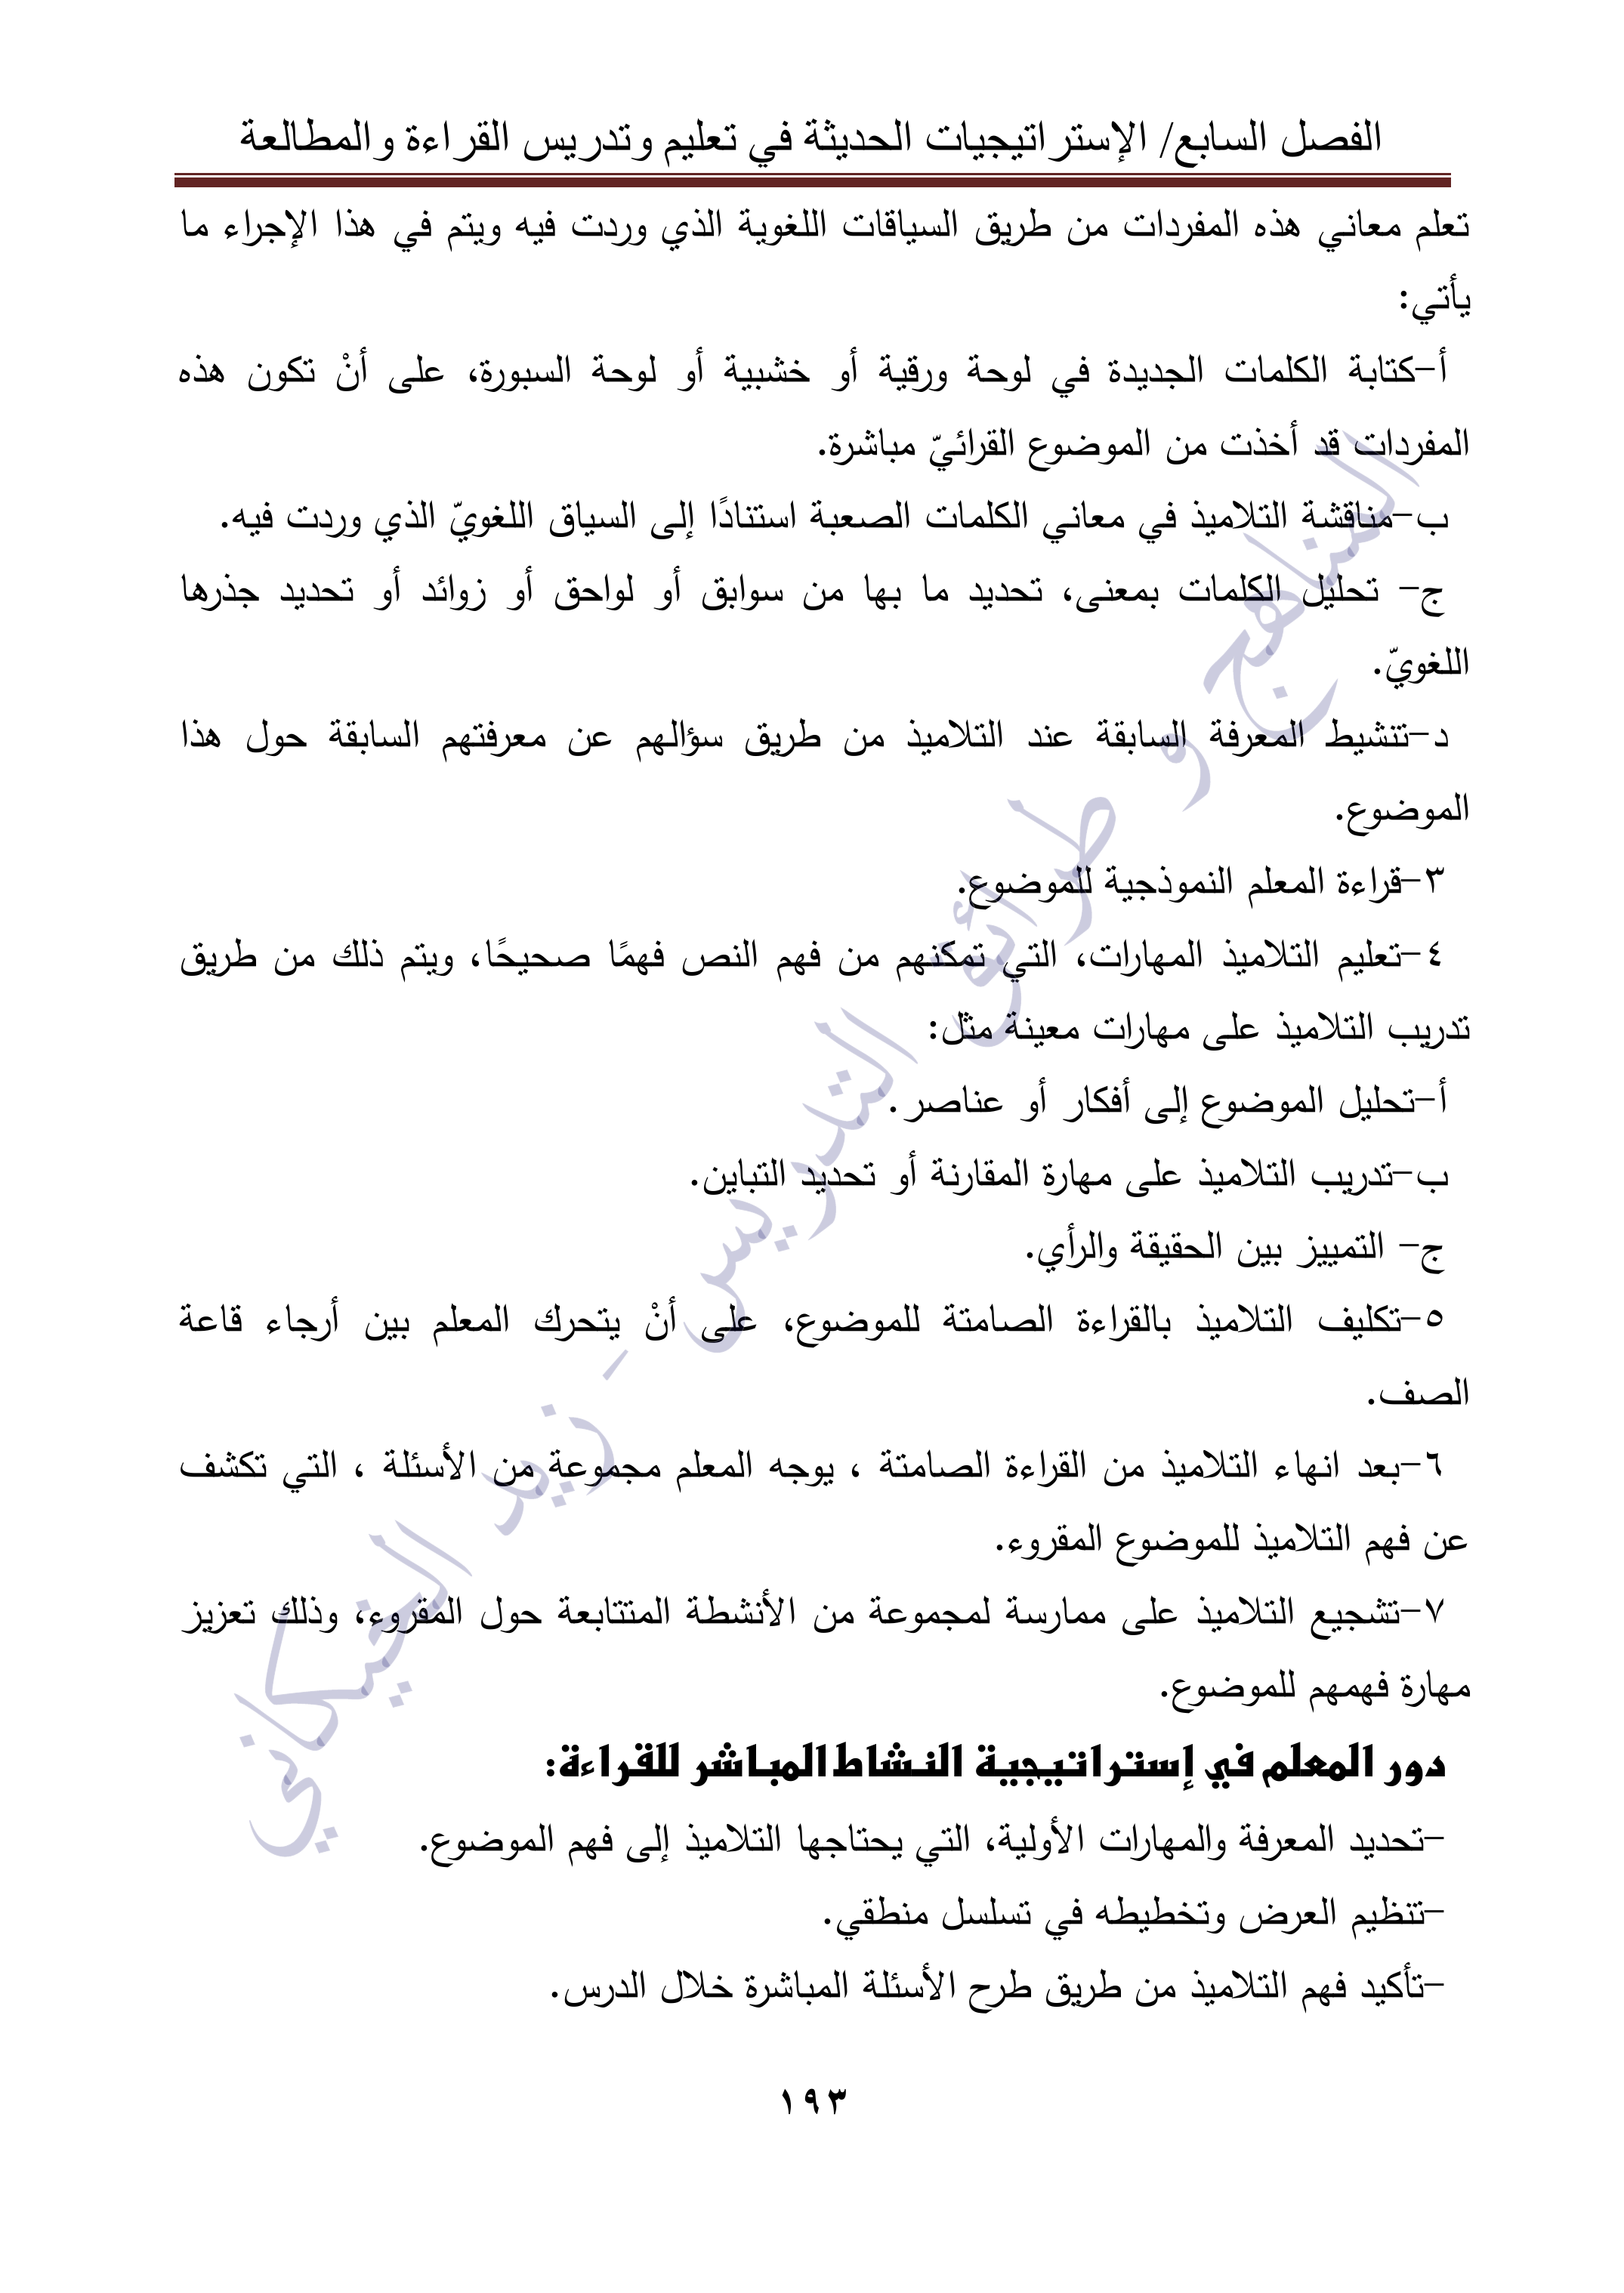 الفصل السابع/ الإستراتيجيات الحديثة في تعليم وتدريس القراءة والمطالعة
تعلم معاني هذه المفردات من طريق السياقات اللغوية الذي وردت فيه ويتم في هذا الإجراء ما
يأتي:
أ-كتابة الكلمات الجديدة في لوحة ورقية أو خشبية أو لوحة السبورة، على أنْ تكون هذه
المفردات قد أخذت من الموضوع القرائيّ مباشرة.
ب-مناقشة التلاميذ في معاني الكلمات الصعبة استنادًا إلى السياق اللغويّ الذي وردت فيه.
ج- تحليل الكلمات بمعنى، تحديد ما بها من سوابق أو لواحق أو زوائد أو تحديد جذرها
اللغويّ.
د-تنشيط المعرفة السابقة عند التلاميذ من طريق سؤالهم عن معرفتهم السابقة حول هذا
الموضوع.
٣-قراءة المعلم النموذجية للموضوع.
٤-تعليم التلاميذ المهارات، التي تمكنهم من فهم النص فهمًا صحيحًا، ويتم ذلك من طريق
تدريب التلاميذ على مهارات معينة مثل:
أ-تحليل الموضوع إلى أفكار أو عناصر.
ب-تدريب التلاميذ على مهارة المقارنة أو تحديد التباين.
ج- التمييز بين الحقيقة والرأي.
٥-تكليف التلاميذ بالقراءة الصامتة للموضوع، على أنْ يتحرك المعلم بين أرجاء قاعة
الصف.
٦-بعد انهاء التلاميذ من القراءة الصامتة ، يوجه المعلم مجموعة من الأسئلة ، التي تكشف
عن فهم التلاميذ للموضوع المقروء.
٧-تشجيع التلاميذ على ممارسة لمجموعة من الأنشطة المتتابعة حول المقروء، وذلك تعزيز
مهارة فهمهم للموضوع.
دور المعلم في إستراتيجية النشاط المباشر للقراءة:
-تحديد المعرفة والمهارات الأولية، التي يحتاجها التلاميذ إلى فهم الموضوع.
-تنظيم العرض وتخطيطه في تسلسل منطقي.
-تأكيد فهم التلاميذ من طريق طرح الأسئلة المباشرة خلال الدرس.
١٩٣
المناهج و طرائق التدريس - زيد الخيكاني